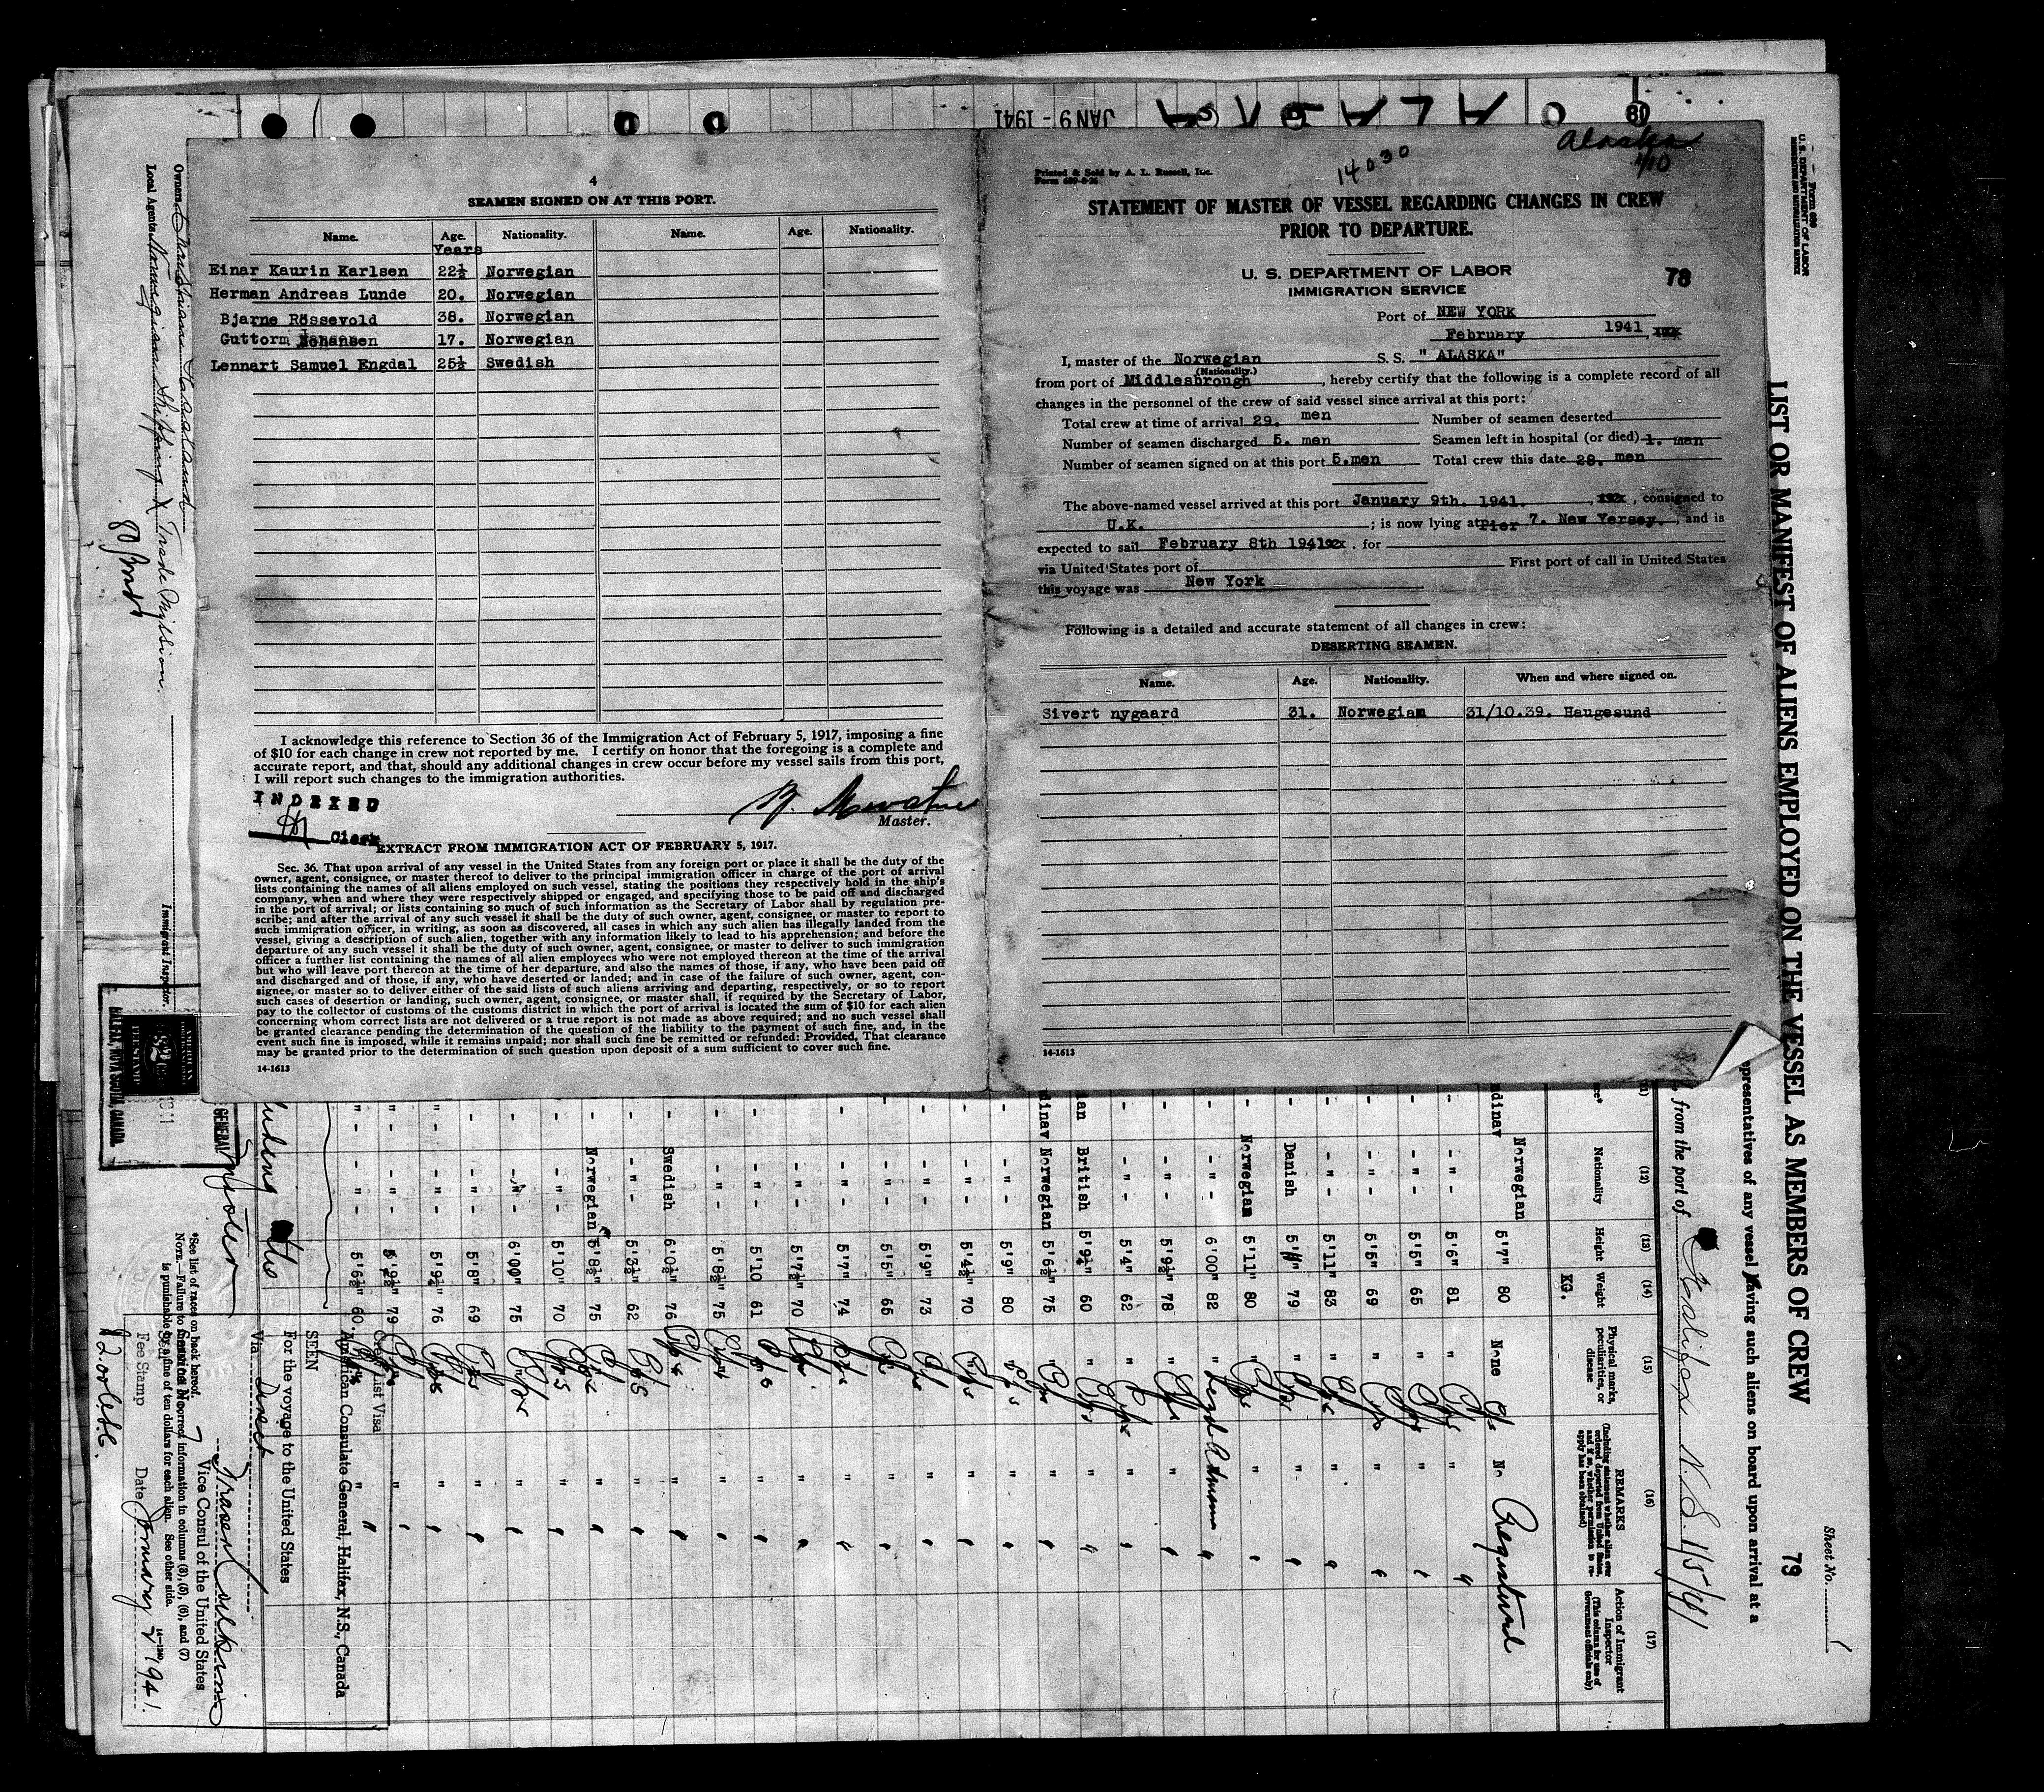 JAN 9 - 1941
ALASKA
80
4
SEAMEN SIGNED ON AT THIS PORT.
Name. Age. Nationality. Name. Age. Nationality.
Years
Einar Kaurin Karlsen 22½ Norwegian
Herman Andreas Lunde 20. Norwegian
Bjarne Rössevold 38. Norwegian
Guttorm Johansen 17. Norwegian
Lennart Samuel Engdal 25½ Swedish
I acknowledge this reference to Section 36 of the Immigration Act of February 5, 1917, imposing a fine
of $10 for each change in crew not reported by me. I certify on honor that the foregoing is a complete and
accurate report, and that, should any additional changes in crew occur before my vessel sails from this port,
I will report such changes to the immigration authorities.
INDEXED
Clerk
Master.
EXTRACT FROM IMMIGRATION ACT OF FEBRUARY 5, 1917.
Sec. 36. That upon arrival of any vessel in the United States from any foreign port or place it shall be the duty of the
owner, agent, consignee, or master thereof to deliver to the principal immigration officer in charge of the port of arrival
lists containing the names of all aliens employed on such vessel, stating the positions they respectively hold in the ship's
company, when and where they were respectively shipped or engaged, and specifying those to be paid off and discharged
in the port of arrival; or lists containing so much of such information as the Secretary of Labor shall by regulation pre-
scribe; and after the arrival of any such vessel it shall be the duty of such owner, agent, consignee, or master to report to
such immigration officer, in writing, as soon as discovered, all cases in which any such alien has illegally landed from the
vessel, giving a description of such alien, together with any information likely to lead to his apprehension; and before the
departure of any such vessel it shall be the duty of such owner, agent, consignee, or master to deliver to such immigration
officer a further list containing the names of all alien employees who were not employed thereon at the time of the arrival
but who will leave port thereon at the time of her departure, and also the names of those, if any, who have been paid off
and discharged and of those, if any, who have deserted or landed; and in case of the failure of such owner, agent, con-
signee, or master so to deliver either of the said lists of such aliens arriving and departing, respectively, or so to report
such cases of desertion or landing, such owner, agent, consignee, or master shall, if required by the Secretary of Labor,
pay to the collector of customs of the customs district in which the port of arrival is located the sum of $10 for each alien
concerning whom correct lists are not delivered or a true report is not made as above required; and no such vessel shall
be granted clearance pending the determination of the question of the liability to the payment of such fine, and, in the
event such fine is imposed, while it remains unpaid; nor shall such fine be remitted or refunded: Provided, That clearance
may be granted prior to the determination of such question upon deposit of a sum sufficient to cover such fine.
14-1613
Printed & Sold by A. L. Russell, Inc.
14030
Alaska
1/10
STATEMENT OF MASTER OF VESSEL REGARDING CHANGES IN CREW
PRIOR TO DEPARTURE.
U. S. DEPARTMENT OF LABOR
IMMIGRATION SERVICE
78
Port of NEW YORK
February 1941
I, master of the Norwegian S. S. " ALASKA"
(Nationality.)
from port of Middlesbrough, hereby certify that the following is a complete record of all
changes in the personnel of the crew of said vessel since arrival at this port:
Total crew at time of arrival 29. men Number of seamen deserted
Number of seamen discharged 5. men Seamen left in hospital (or died) 1. man
Number of seamen signed on at this port 5.men Total crew this date 28. men
The above-named vessel arrived at this port January 9th. 1941., consigned to
U.K.; is now lying at Pier 7. New Yersey., and is
expected to sail February 8th 1941, for
via United States port of First port of call in United States
this voyage was New York
Following is a detailed and accurate statement of all changes in crew:
DESERTING SEAMEN.
Name. Age. Nationality. When and where signed on.
Sivert nygaard 31. Norwegian 31/10.39. Haugesund
14-1613
Form 680
U. S. DEPARTMENT OF LABOR
LIST OR MANIFEST OF ALIENS EMPLOYED ON THE VESSEL AS MEMBERS OF CREW
79
Sheet No. 1
epresentatives of any vessel having such aliens on board upon arrival at a
from the port of Halifax N.S. 1/5/41
(12) (13) (14) (15) (16) (17)
Nationality Height Weight Physical marks, peculiarities, or disease REMARKS Action of Immigrant Inspector
KG.
Norwegian 5'7" 80 None No Registered
" 5'6" 81 " "
" 5'5" 65 " "
" 5'5" 69 " "
" 5'11" 83 " "
Danish 79 " "
Norwegian 5'11" 80 " "
" 6'00" 82 "
" 5'9½" 78 " "
" 5'4" 62 " "
British 5'9¼" 60 " "
Norwegian 5'6½" 75 " "
5'9" 80 " "
" 5'4½" 70 " "
" 5'9" 73 " "
" 5'5" 65 " "
" 5'7" 74 " "
" 5'7½" 70 " "
" 5'10 61 " "
" 5'8½" 75 " "
Swedish 6'0½" 76 " "
" 5'3½" 62 " "
Norwegian 5'8½" 75 " "
" 5'10" 70 " "
" 6'00" 75 " "
" 5'8" 69 " "
" 5'9¼" 76 " "
" 5'9½" 79 " "
" 5'6½" 60. " "
Crew List Visa
American Consulate General, Halifax, N.S., Canada
SEEN
For the voyage to the United States
Via Direct
Vice Consul of the United States
*See list of races on back hereof.
NOTE.—Failure to
is punishable by a fine of ten dollars for each alien. See other side.
Fee Stamp Date January 2 1941.
Owners
Local Agents Norwegian Shipping & Trade Mission.
Immigrant Inspector.
HALIFAX, NOVA SCOTIA, CANADA